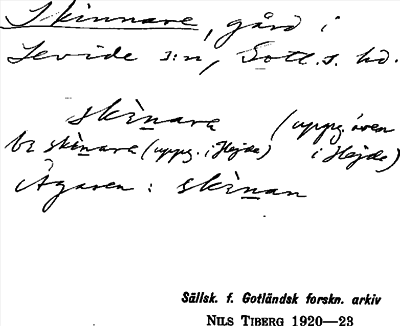 Skinnare, gård i
Levide s:n, Gotl. s. hd.
skìnara (uppg. även
bɪ skìnara (uppg. i Hejde) i Hejde)
Ägaren : skìnan
Sällsk. f. Gotländsk forskn. arkiv
NILS TIBERG 1920—23